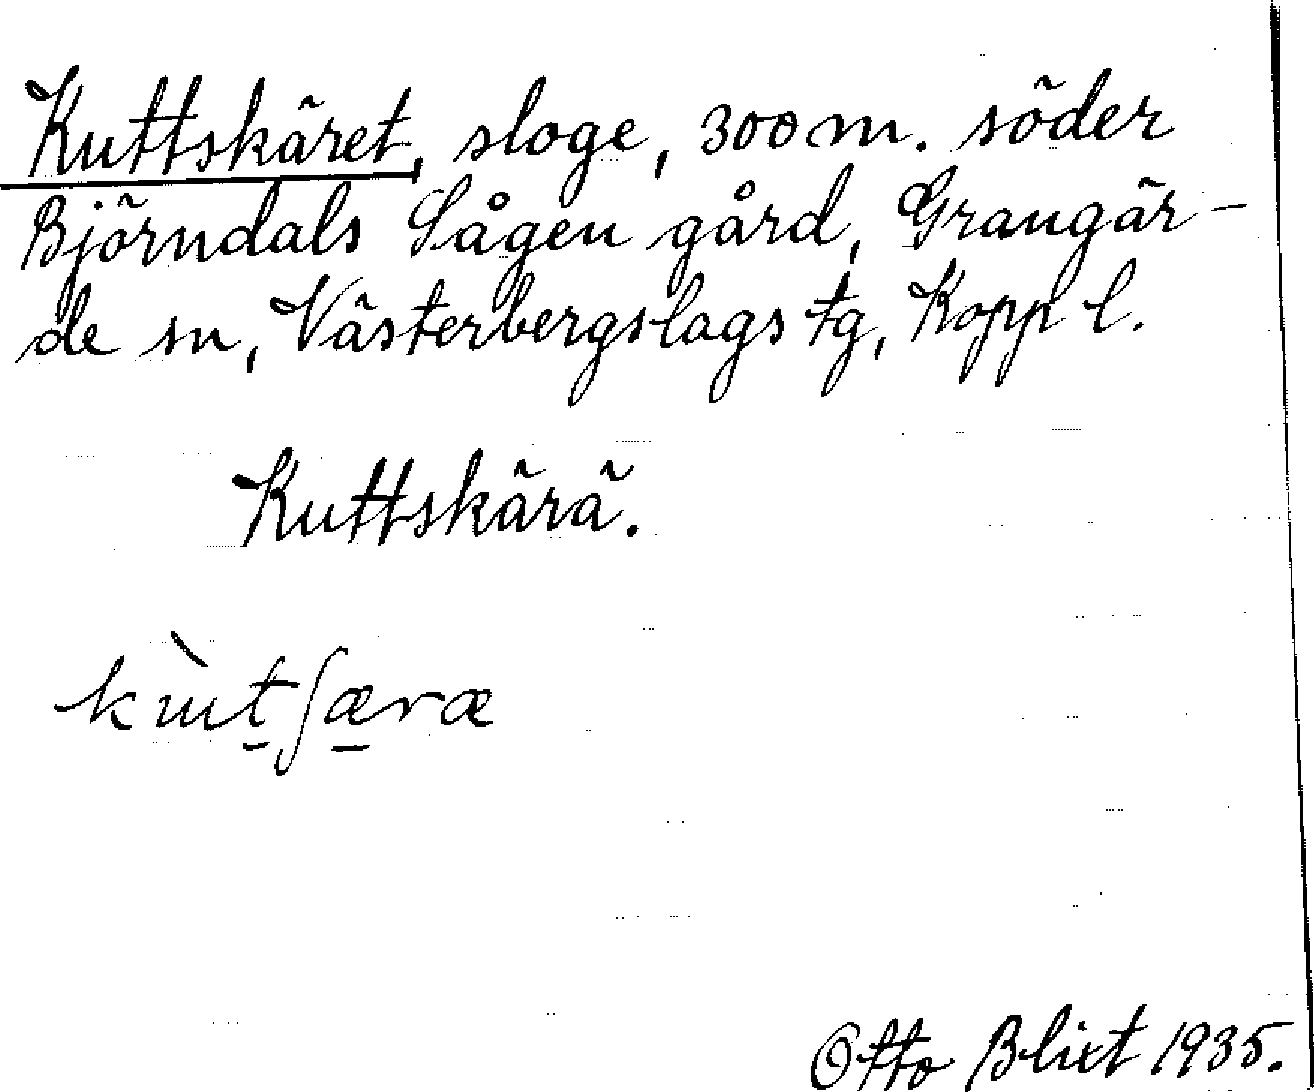 Kuttskäret, sloge, 300 m. söder
Björndals Sågen gård, Grangär-
de sn, Västerbergslags tg, Kopp l.
Kuttskärä.
kɯ̀t̠ʃæ̠ræ
Otto Blixt 1935.